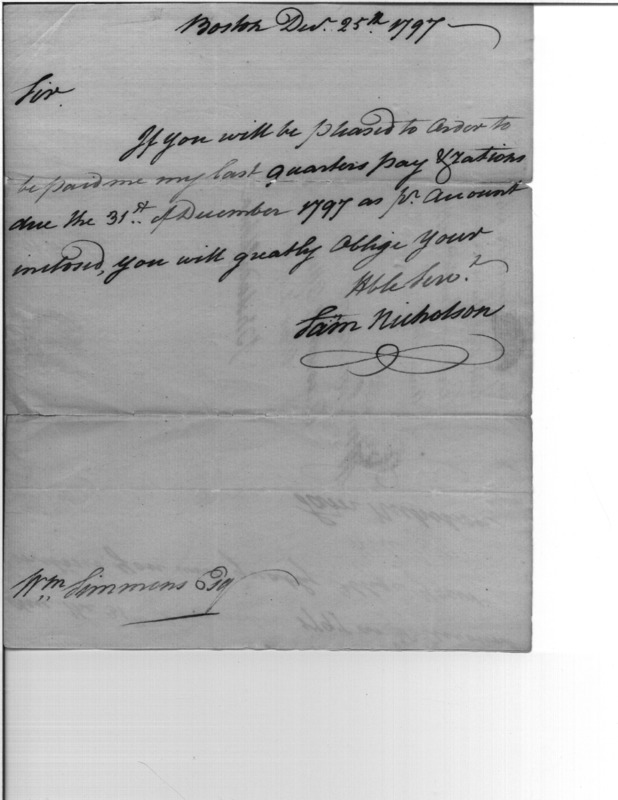 Boston Dec. 25th 1797
Sir.
If you will be pleased to order to
be paid me my last quarters pay & rations
due the 31st of December 1797 as pr. Account
inclosed, you will greatly Oblige Your
Hble Servt.
Sam Nicholson
Wm Simmons Esq